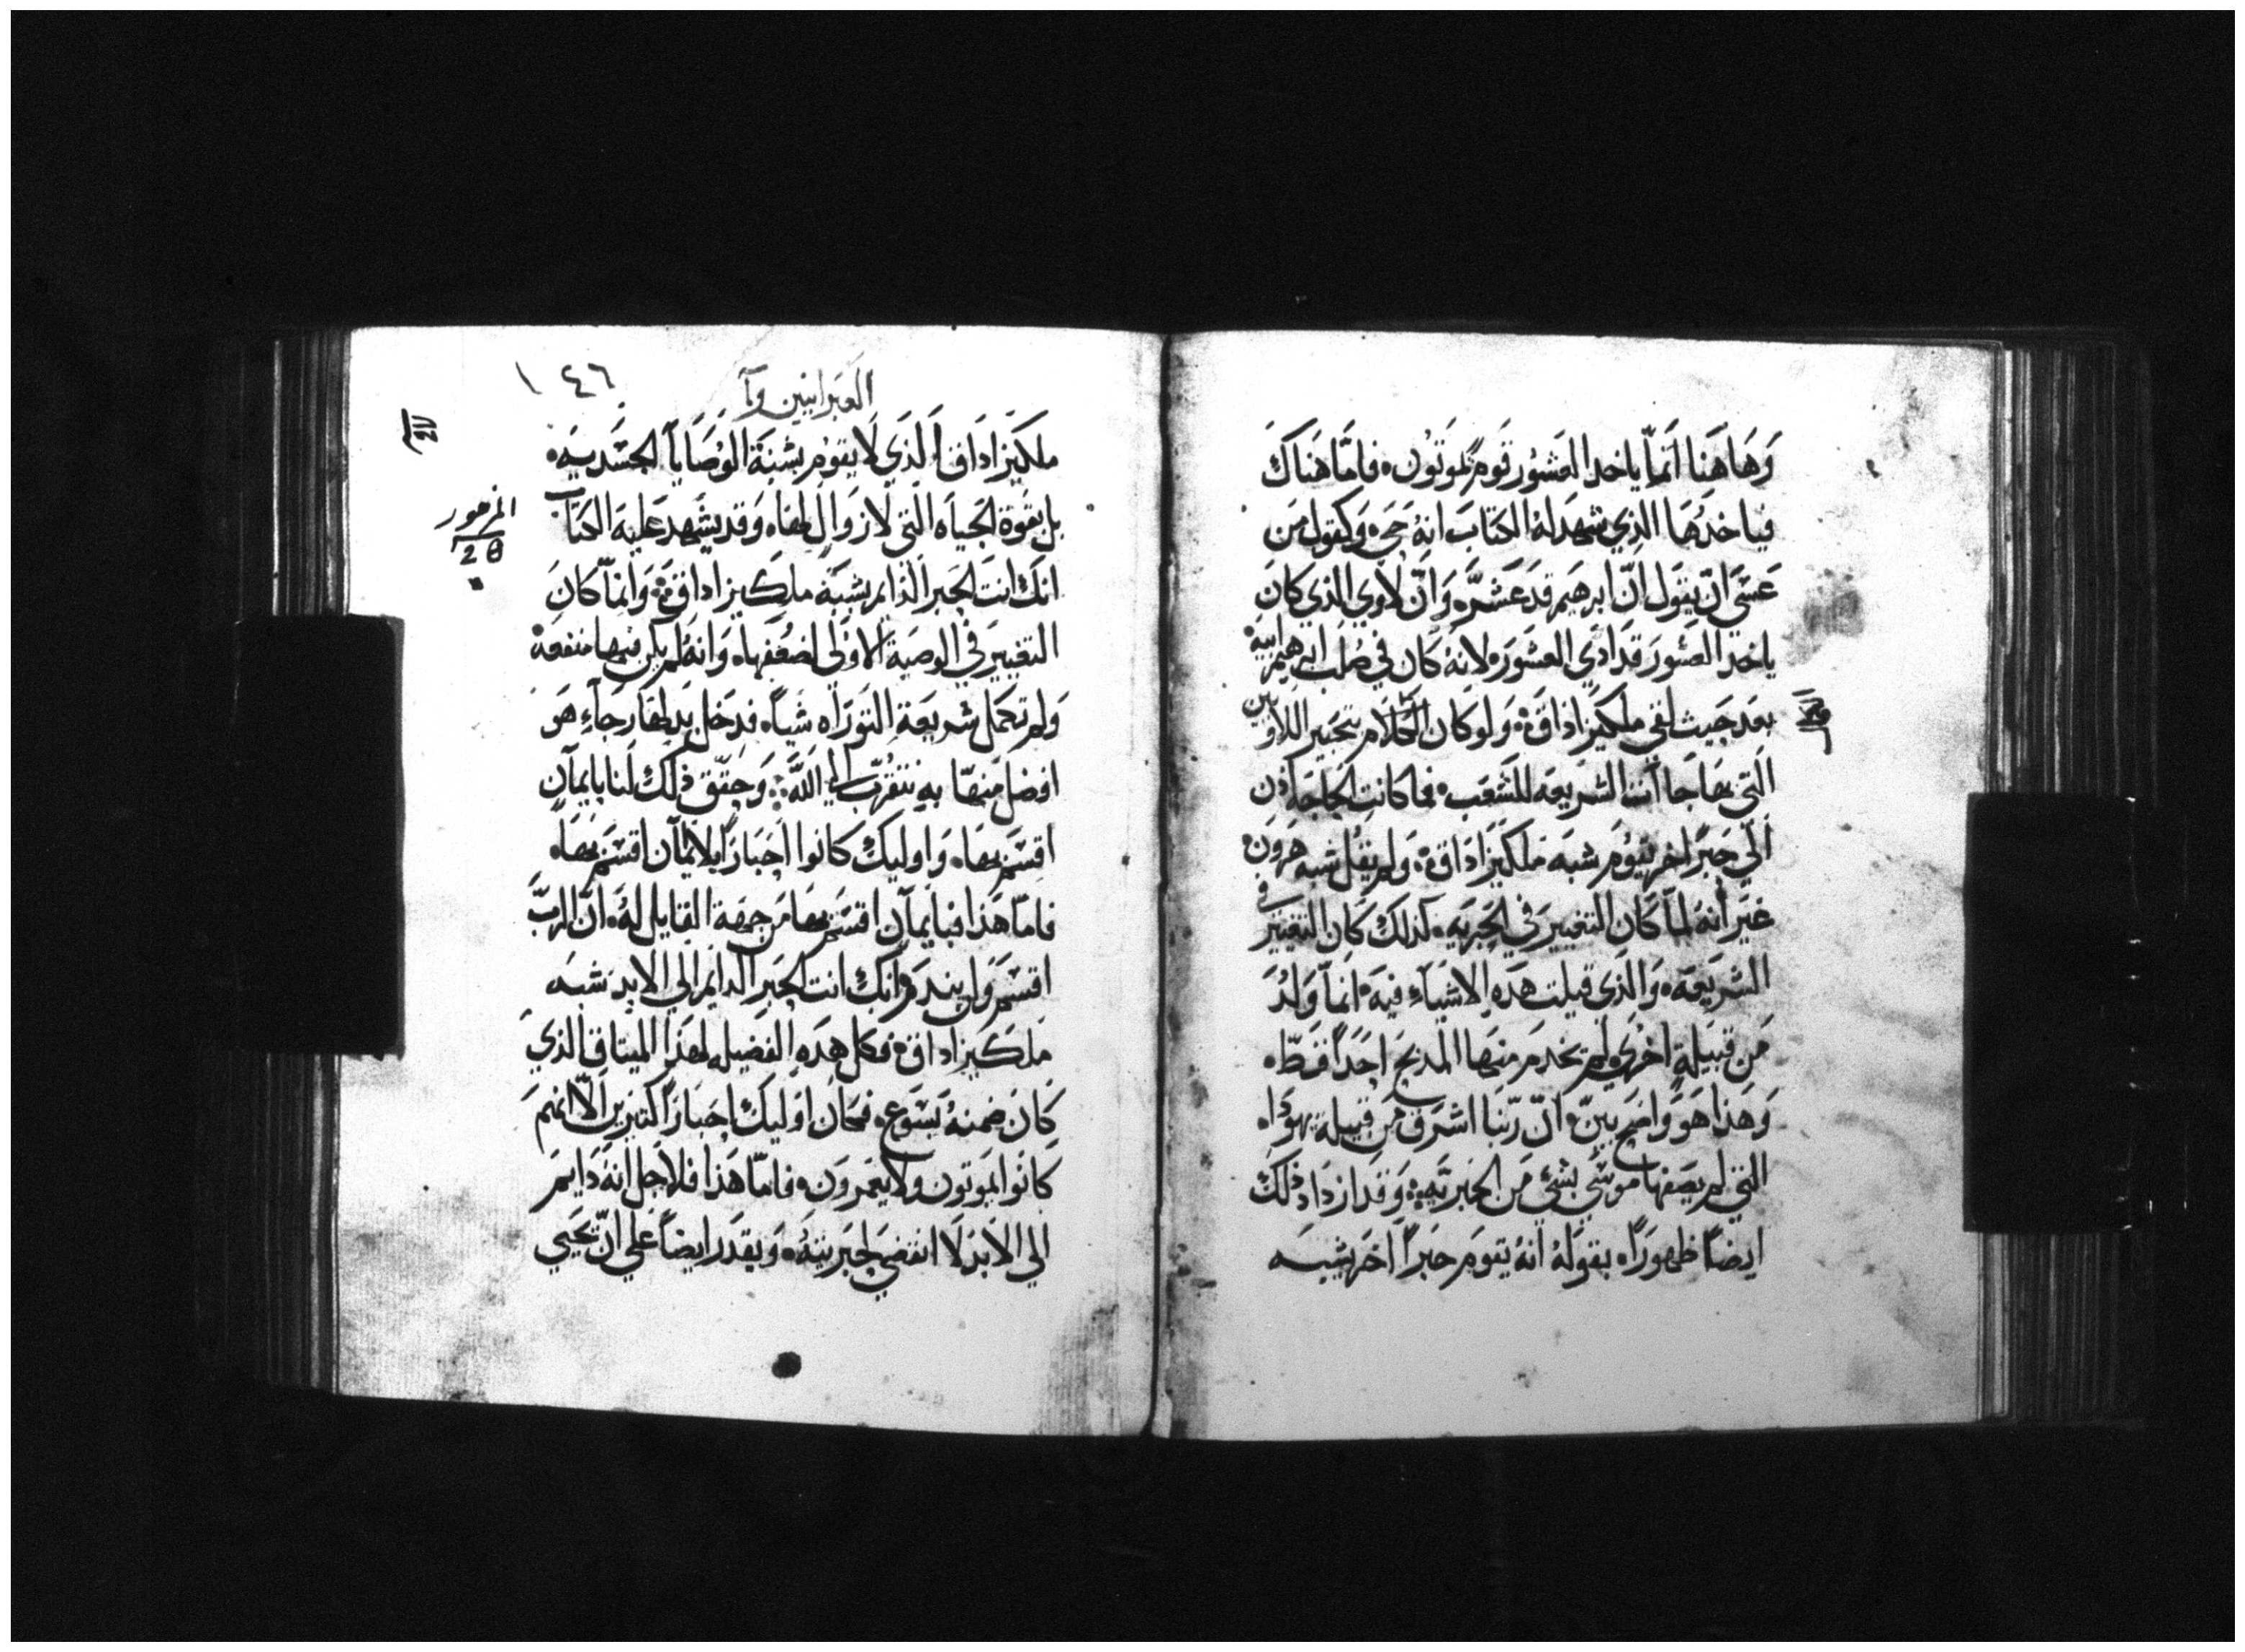 وَهَاهَنا اَنمّا ياخد العَشُور قَومٌ يموَتوُن فامَّا هَناكَ
فياخدهَا الذِي شهِدَ لهُ الكتَابَ انهُ حَيَ وَكقول مَن
عَسَى انّ يقول انّ ابرهيم قدَ عَشرّ وَانّ لاوي الذي كانَ
ياخد العشورَ قدَ ادَي العشورَ لانهُ كان في صُلب ابرهيم ابيه
بعدَ حَيث لقي ملكيزاداق وَلو كان الكلام بتحبير اللاويين
الَتي بهَا جا اَتت الشريعه للشَعَب فما كانتِ الحَاجَه اذن
الَي حَبرًا اخر يقوُم شبهَ ملكَيزادَاق وَلم يقُل شبه هَروَن
غيَر انهُ لماَ كَان التغييرَ في الحَبريَه كذلكَ كان التغيير في
الشريَعَه وَالذي قيلت هَدهِ الاشيآءِ فيهَ انمَاّ وَلدَ
مَن قبيلةٍ اخرَي لم يخدمَ منهَا المَدبحَ احَداً قطّ
وَهَذا هَو وَاضح بينّ انّ ربّنا اشرَق مَن قبيلة يهوَدا
التي لم يصَفها موسَي بشَي مَن الحَبريَّه وَقدَ ازدَادَ ذلكَ
ايضاً ظهورَاً بقوَلهُ انهُ يقومَ حبَراً اخَر يشبهَ
١٤٦
العَبَرانيين
ملكَيزادَاق الَذي لَا يقوُم بشبَهَ الوَصَاياَ الجسَّديَه
بل بقوَة الحَياه التي لا زوَال لهَا وَقدَ يشَهد عَليهَ الكتاب
المزمور
انكَ انتَ الحَبر الدايم بشبَهَ ملكيزاداق وَانماّ كانَ
التغييَر في الوصيَةِ الاوَلى لضعُفهَا وَانهُ لم يكن فيها منفعَة
وَلم تكمَل شريعَةِ التوَرَاه شَياً فدَخل بدَلهَا رَجآءٍ هَو
افضل مَنهَا بهِ نتقرَبّ الي اللهَّ وَحقّق ذلكَ لنَا بايمآنٍ
اقسَم بهَا وَاوليكَ كانوا احَبارَاً بلا ايمآن اقسَم بهَا
فامَاّ هَذا فبايمآنٍ اقسَم بهَا مَن جهَة القايل لهُ انّ الربَّ
اقسَم وَلن يندَم انكَ انت الحَبر الدَايم الي الابدِ شبهَ
مَلكَيزاداق فكل هَدهِ الفضيله لهَذا الميتاق الذيَ
كَان ضمنهُ يَسَوع فكان اوَليكَ احَبارَاً كتيرين الَاّ انهمَ
كانوا يموَتون وَلا يعَمروَن فامّا هَذا فلاجَل انهُ دَايمَ
الي الابدَ لَا انقضَي لحبَريتهُ وَيقدَر ايضاً عَلي انّ يحَيي